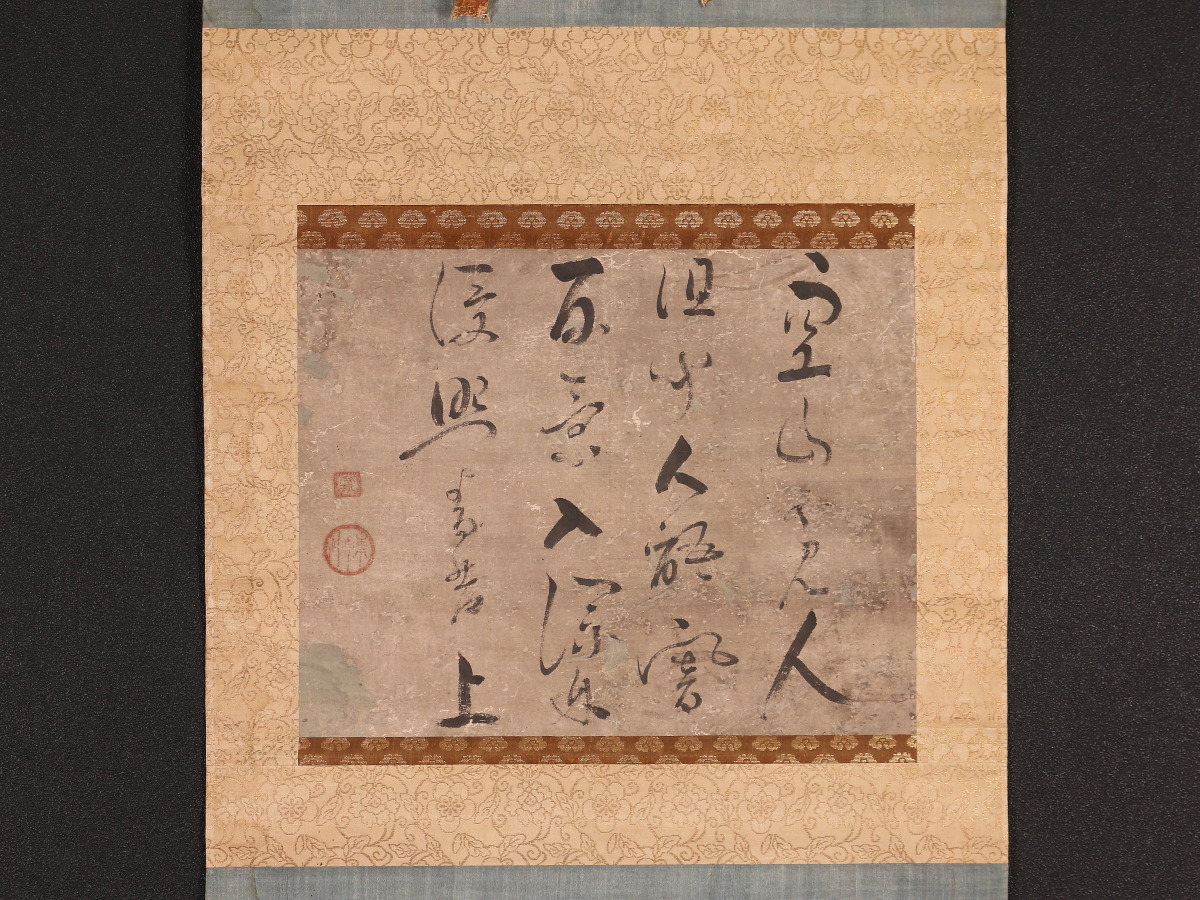 空山不見人
但聞人語響
景入深林
復照青苔上